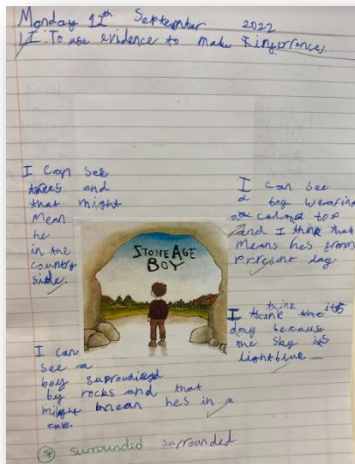 Monday 12th September 2022
LI: To use evidence to make inferrences.
I can see
trees and
that might
mean
he
in the
country
side.
I can see
a boy wearing
and I think that
means hes from
present day
STONE AGE
BOY
I think the its
day because
the sky is
lightblue
I can
see a
boy suprouded
by rocks and that
might mean hes in a
surrounded surrounded